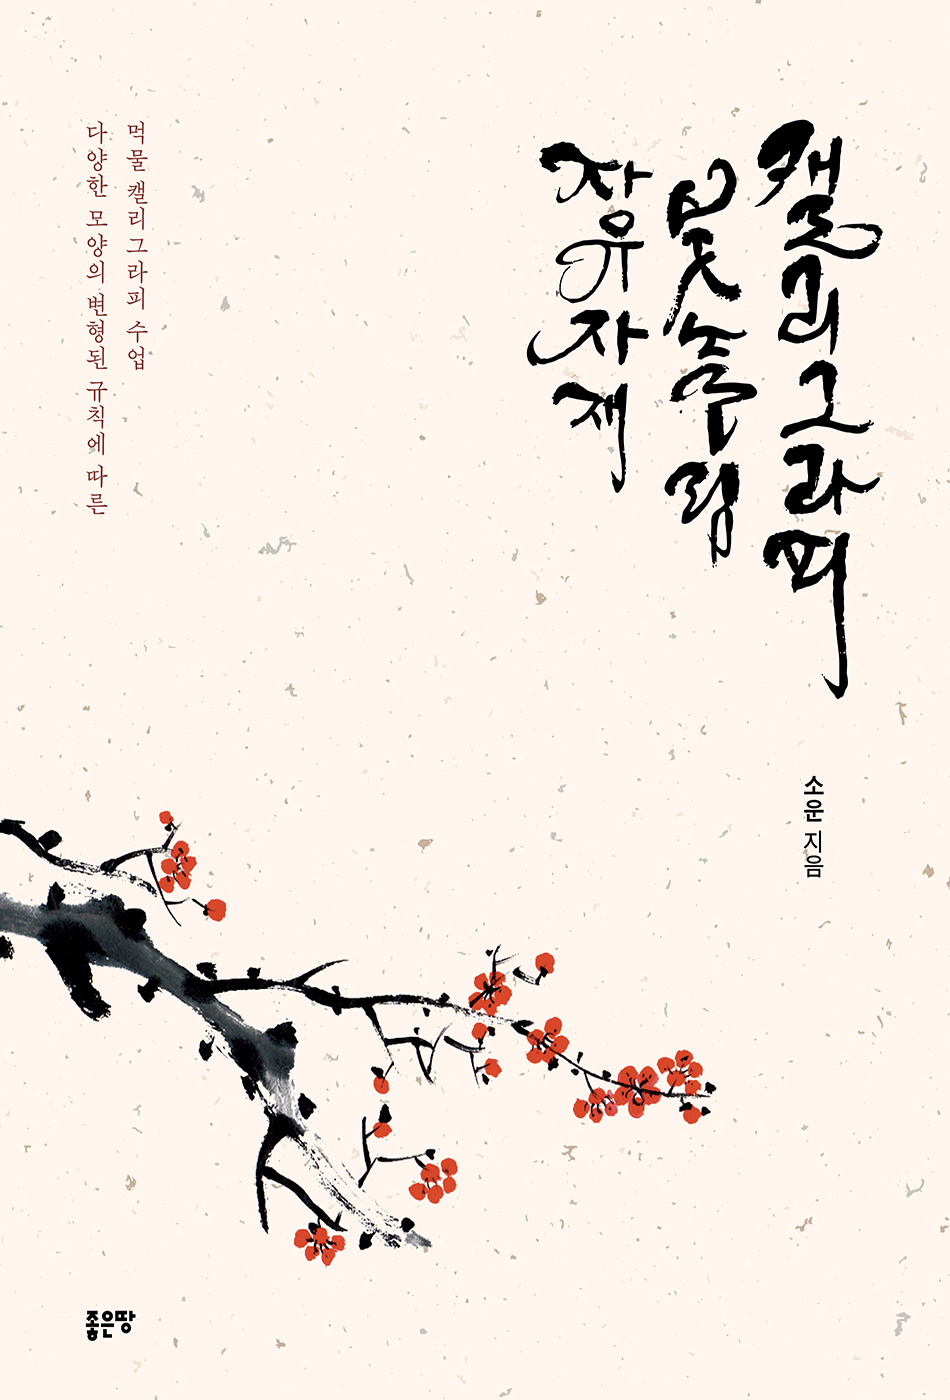 캘리그라피
붓놀림
자유자재
소운 지음
다양한 모양의 변형된 규칙에 따른
먹물 캘리그라피 수업
좋은땅